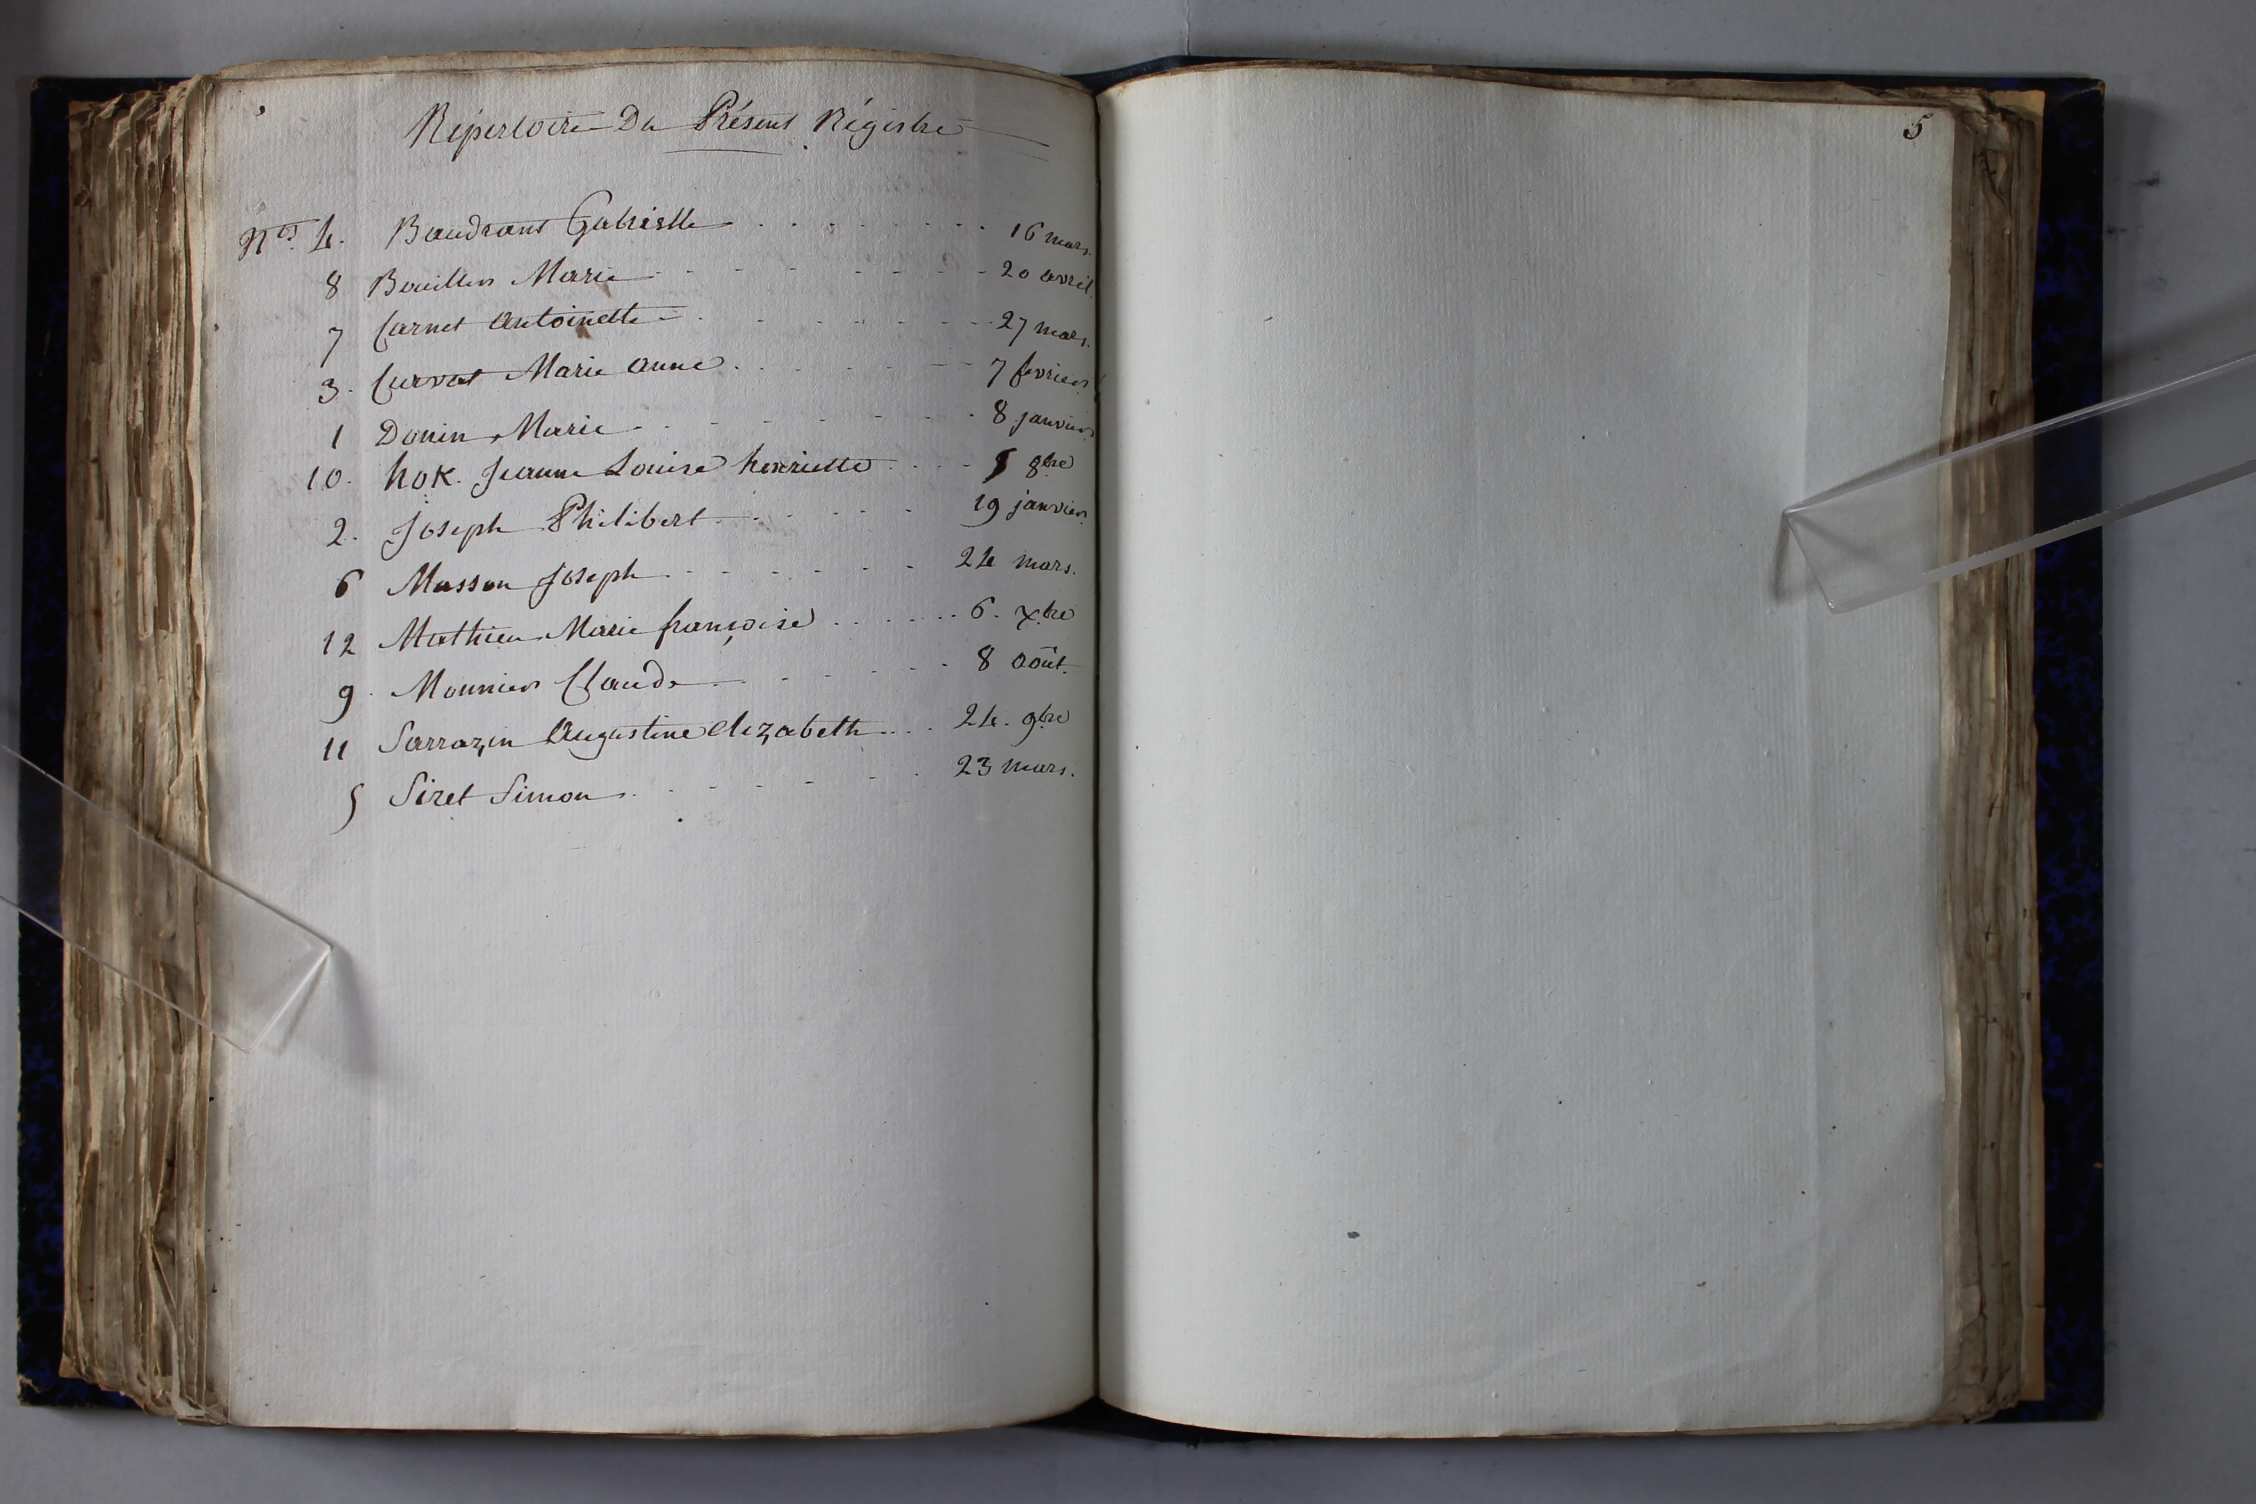 Répertoire Du Présent Régistre
Nos. 4. Baudrant Gabrielle 16 mars.
8 Bouillier Marie 20 avril.
7 Carnet Antoinette 27 mars.
3. Curvat Marie Anne 7 fevrier
1 Donin Marie 8 janvier
10. hok. Jeanne Louise henriette 5 8bre
2. Joseph Philibert 19 janvier.
6 Masson Joseph 24 mars.
12 Mathieu Marie françoise 6. xbre
9. Monnier Claude 8 Août.
11 Sarrazin Augustine elizabeth 24. 9bre
5 Siret Simon 23 mars.
5